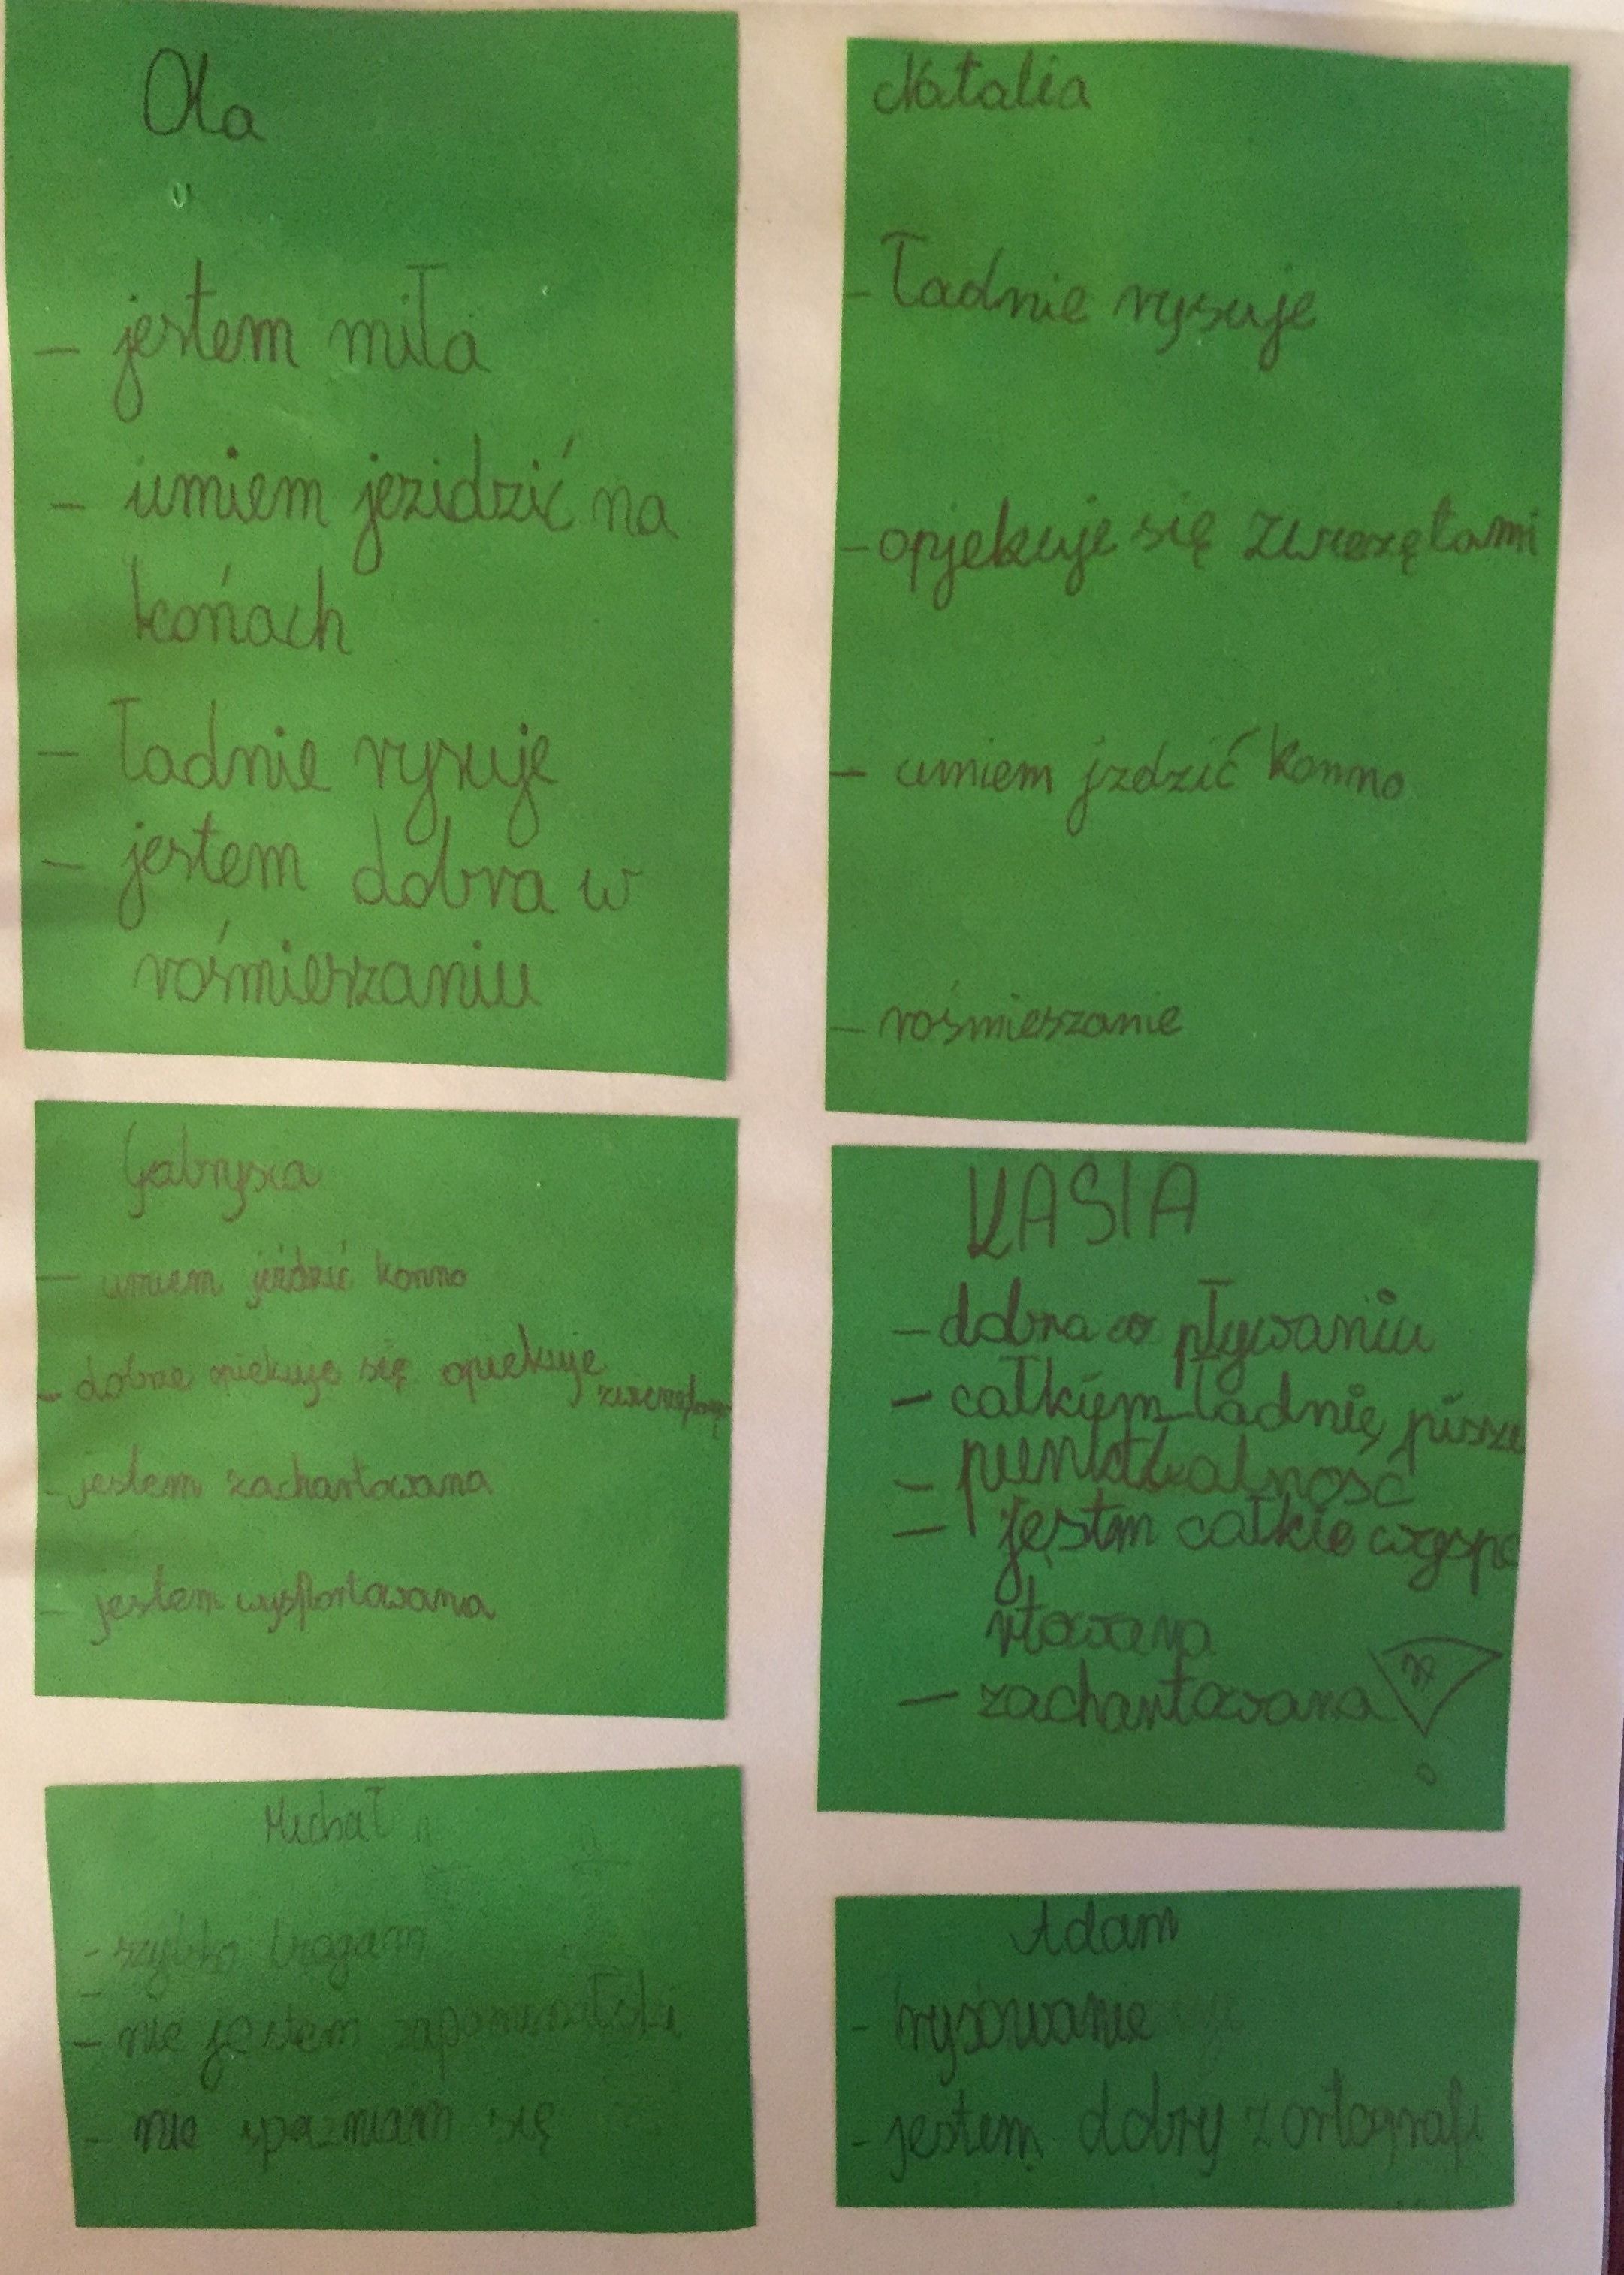 Ola
- jestem miła
- umiem jezidzić na
końach
- Ładnie rysuje
- jestem dobra w
rośmieszaniu
Natalia
- Ładnie rysuje
- opjekuje się zwierzętami
- umiem jzdzić konno
- rośmieszanie
Gabrysia
- umiem jeździć konno
- dobrze opiekuje się opiekuje
- jestem zachartowana
- jestem wysportowana
KASIA
- dobra w pływaniu
- całkiem ładnię pisze
- punktualność
- jestm całkie wyspo
rtowana
- zachartowana
Michał
- szybko biegam
-
- nie jestem zapominalski
- nie spaźniam się
Adam
- rysowanie
- jestem dobry z ortografi